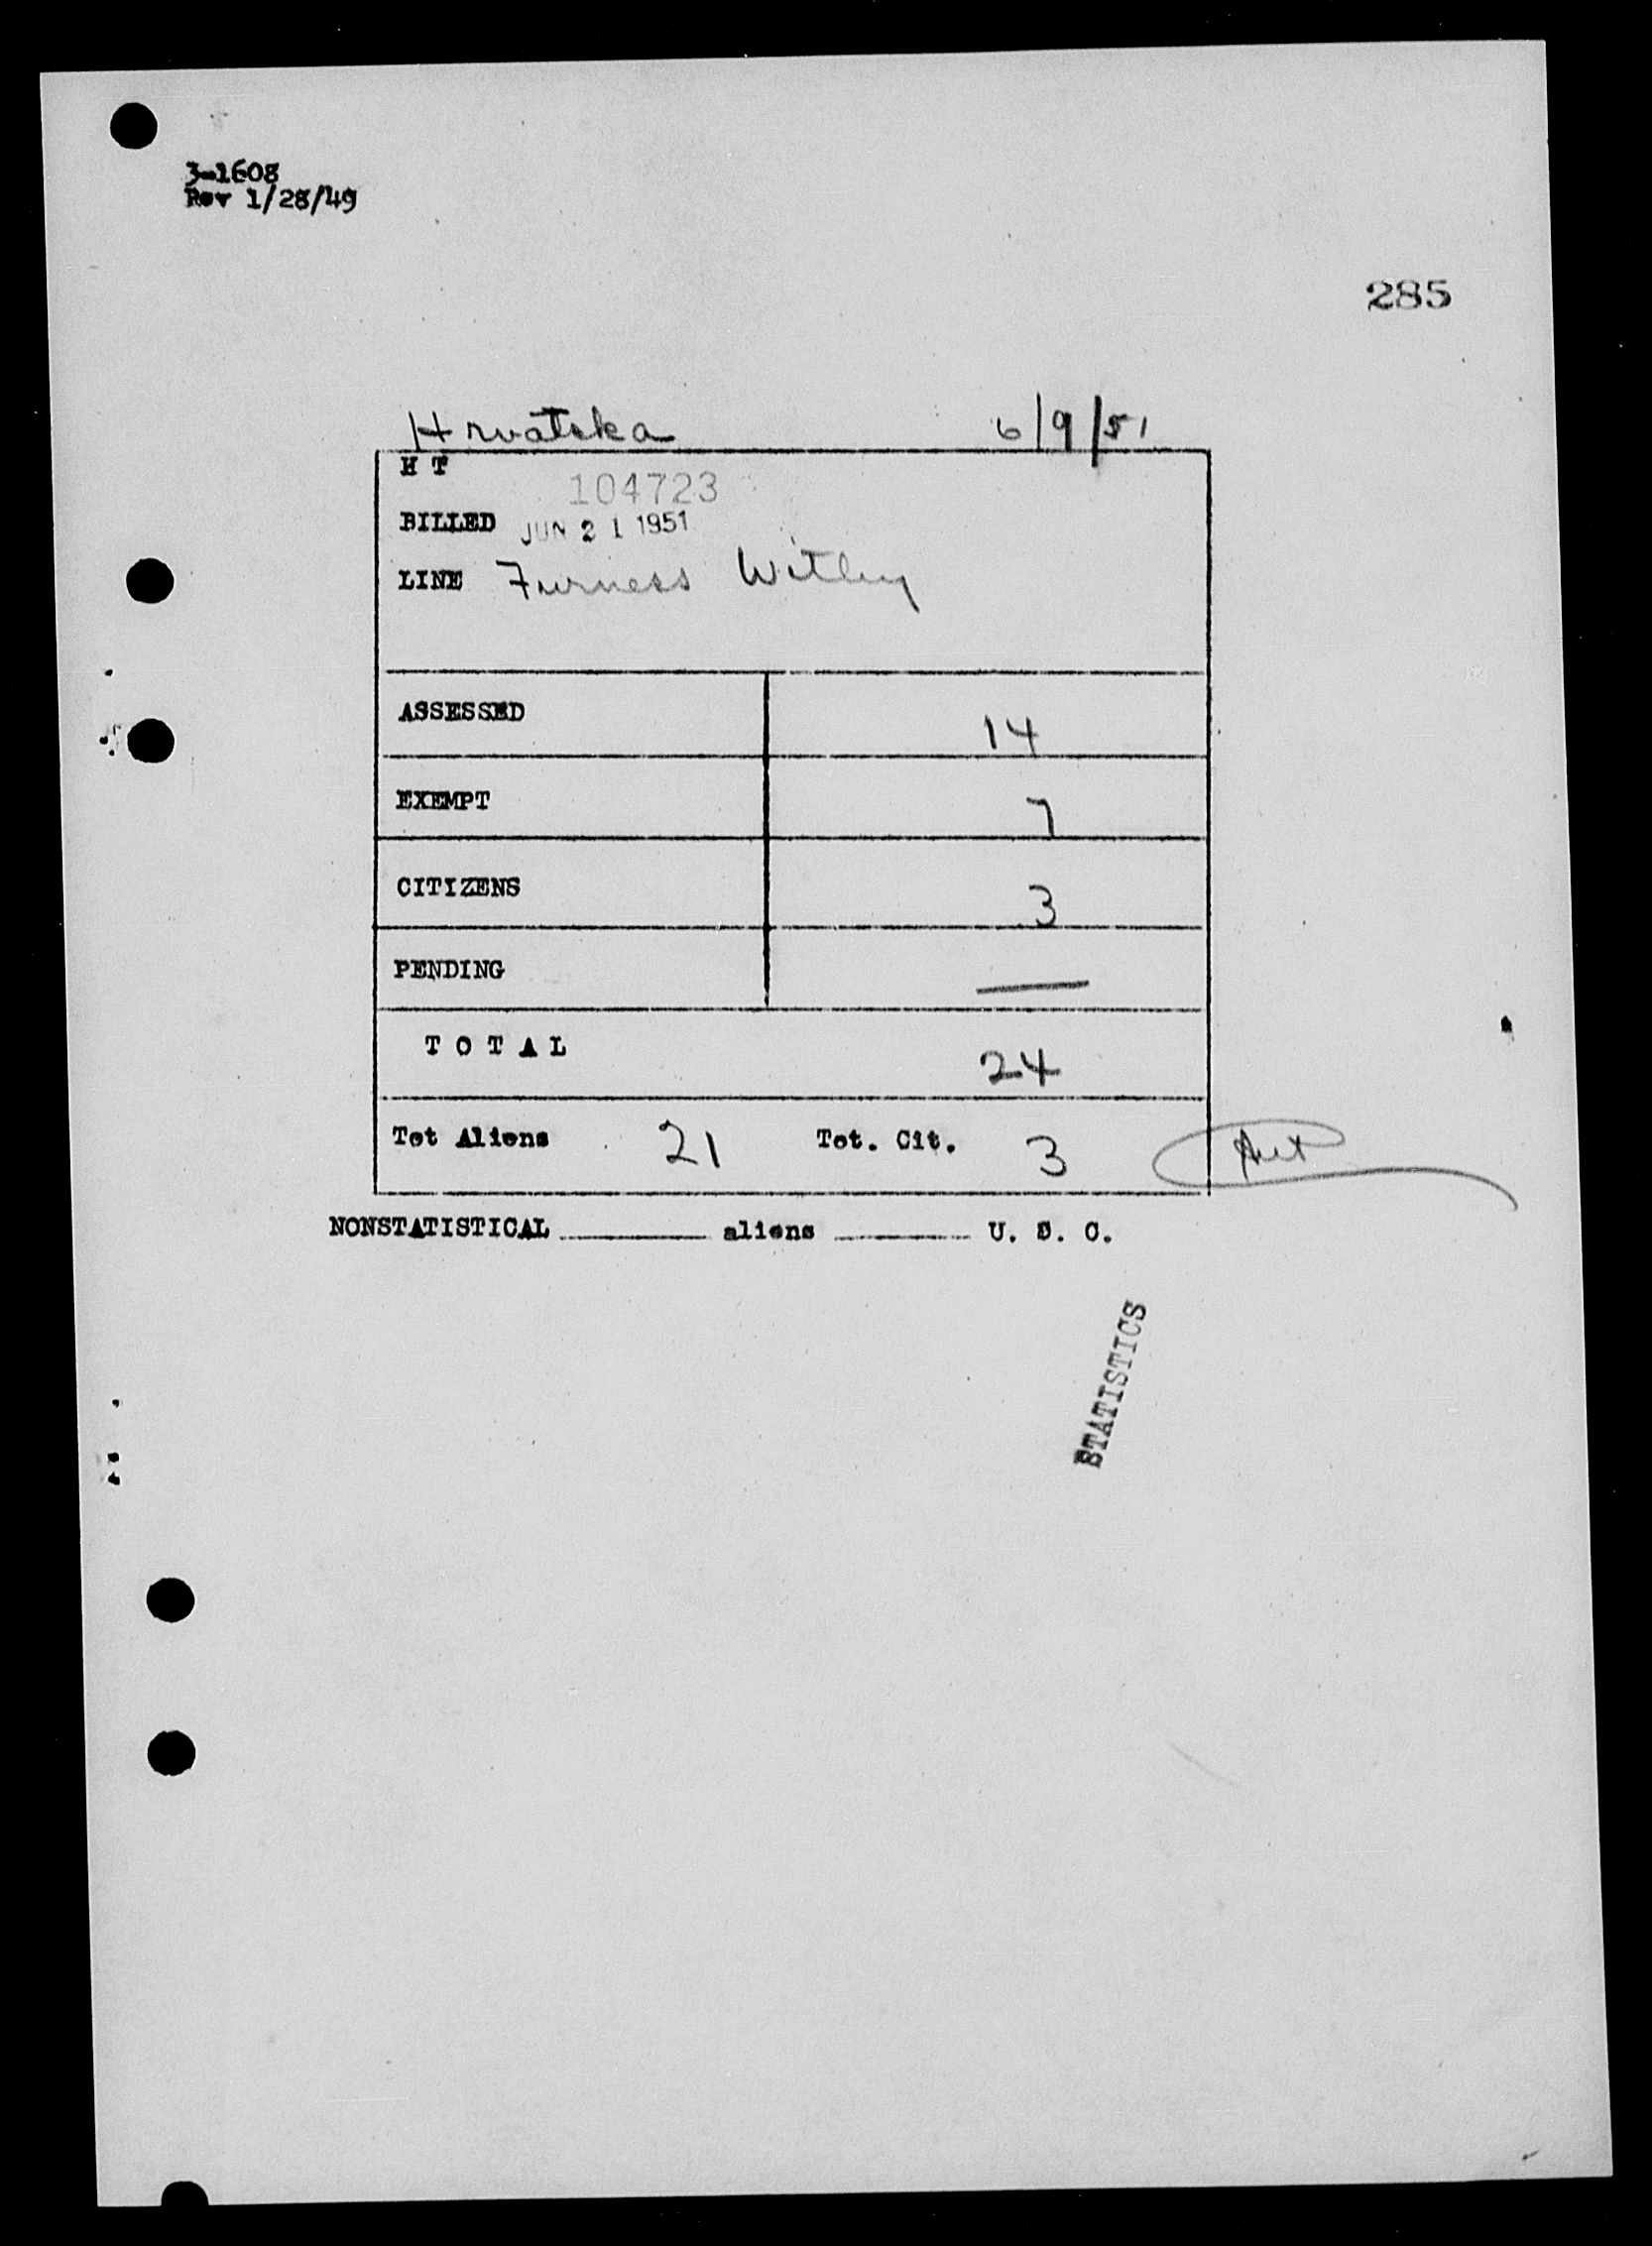 3-1608
Rev 1/28/49
285
Hrvatska 6/9/51
H T 104723
BILLED JUN 21 1951
LINE Furness Withy
ASSESSED 14
EXEMPT 7
CITIZENS 3
PENDING —
T O T A L 24
Tot Aliens 21 Tot. Cit. 3
NONSTATISTICAL ______ aliens ______ U. S. C.
STATISTICS